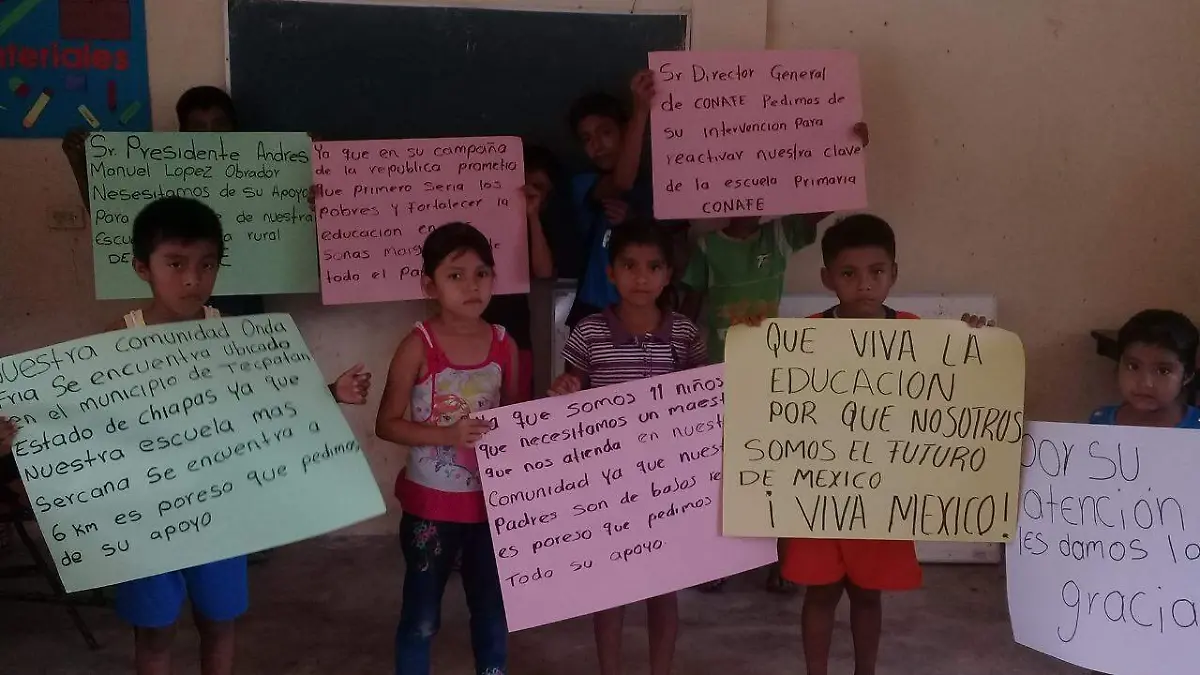 ateriales
Sr. Presidente Andres
Manuel Lopez Obrador
Nesesitamos de su Apoyo
Para de nuestra
Escu rural
DE
Ya que en su campaña
de la republica prometio
que primero seria los
Pobres y fortalecer la
educacion en
Sonas Marg de
todo el Pa
Sr Director General
de CONAFE Pedimos de
su intervencion Para
reactivar nuestra clave
de la escuela Primaria
CONAFE
Nuestra comunidad Onda
Fria Se encuentra Ubicado
en el municipio de Tecpatan
Estado de chiapas Ya que
Nuestra escuela mas
Sercana se encuentra a
6 km es poreso que pedimos
de su apoyo
Ya que somos 11 niños
que necesitamos un maest
que nos atienda en nuest
Comunidad Ya que nuest
Padres son de bajos re
es poreso que pedimos
Todo su apoyo.
QUE VIVA LA
EDUCACION
POR QUE NOSOTROS
SOMOS EL FUTURO
DE MEXICO
¡VIVA MEXICO!
por su
atención
les damos la
gracia